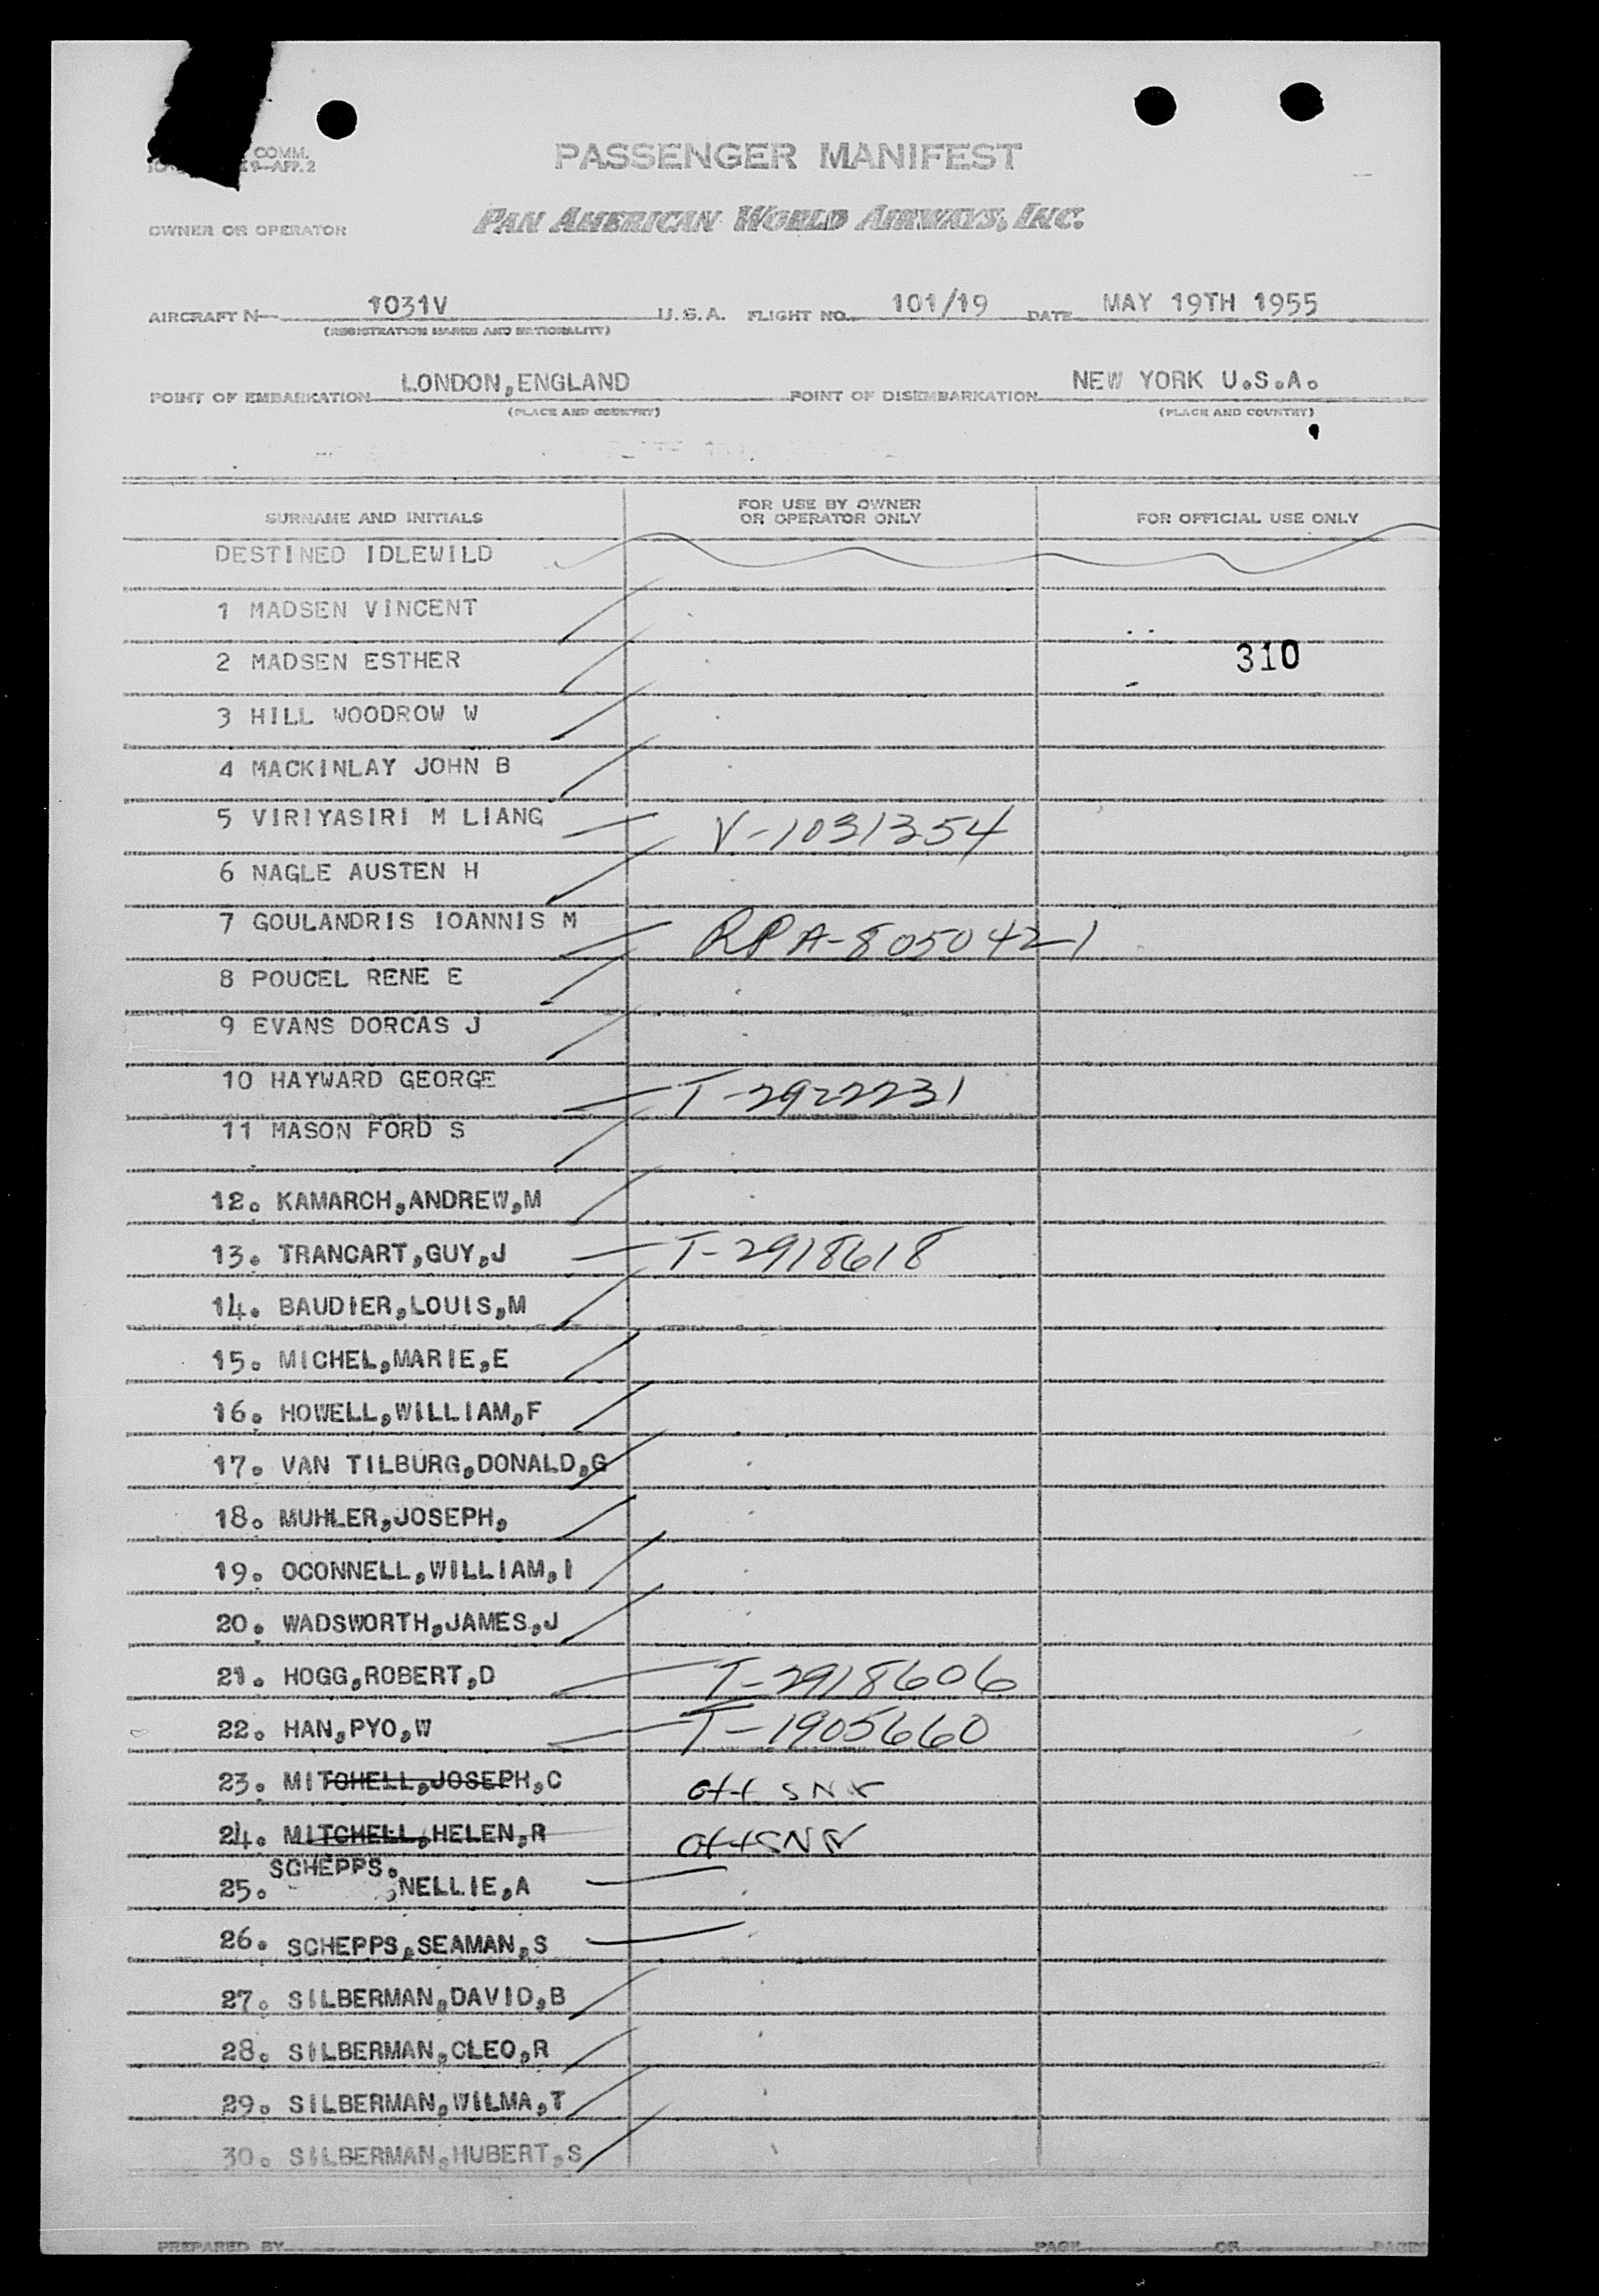 COMM.
PASSENGER MANIFEST
OWNER OR OPERATOR PAN AMERICAN WORLD AIRWAYS, INC.
AIRCRAFT N 1031V U.S.A. FLIGHT NO. 101/19 DATE MAY 19TH 1955
(REGISTRATION MARKS AND NATIONALITY)
POINT OF EMBARKATION LONDON,ENGLAND POINT OF DISEMBARKATION NEW YORK U.S.A.
(PLACE AND COUNTRY) (PLACE AND COUNTRY)
SURNAME AND INITIALS FOR USE BY OWNER OR OPERATOR ONLY FOR OFFICIAL USE ONLY
DESTINED IDLEWILD
1 MADSEN VINCENT
2 MADSEN ESTHER 310
3 HILL WOODROW W
4 MACKINLAY JOHN B
5 VIRIYASIRI M LIANG V-1031354
6 NAGLE AUSTEN H
7 GOULANDRIS IOANNIS M RPA-8050421
8 POUCEL RENE E
9 EVANS DORCAS J
10 HAYWARD GEORGE T-2922231
11 MASON FORD S
12. KAMARCH,ANDREW,M
13. TRANCART,GUY,J T-2918618
14. BAUDIER,LOUIS,M
15. MICHEL,MARIE,E
16. HOWELL,WILLIAM,F
17. VAN TILBURG,DONALD,G
18. MUHLER,JOSEPH,
19. OCONNELL,WILLIAM,I
20. WADSWORTH,JAMES,J
21. HOGG,ROBERT,D T-2918606
22. HAN,PYO,W T-1905660
23. MITCHELL,JOSEPH,C off
24. MITCHELL,HELEN,R off
SCHEPPS.
25. ,NELLIE,A
26. SCHEPPS,SEAMAN,S
27. SILBERMAN,DAVID,B
28. SILBERMAN,CLEO,R
29. SILBERMAN,WILMA,T
30. SILBERMAN,HUBERT,S
PREPARED BY PAGE OF PAGES